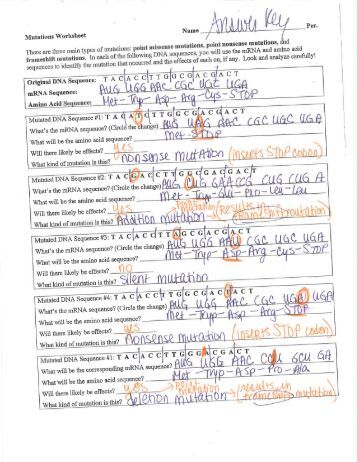 Mutations Worksheet
Name Answer Key Per.
There are three main types of mutations: point missense mutations, point nonsense mutations, and
frameshift mutations. In each of the following DNA sequences, you will use the mRNA and amino acid
sequences to identify the mutation that occurred and the effects of each on, if any. Look and analyze carefully!
Original DNA Sequence: T A C A C C T T G G C G A C G A C T
mRNA Sequence: AUG UGG AAC CGC UGC UGA
Amino Acid Sequence: Met - Trp - Asp - Arg - Cys - STOP
Mutated DNA Sequence #1: T A C A T C T T G G C G A C G A C T
What's the mRNA sequence? (Circle the change) AUG UAG AAC CGC UGC UGA
What will be the amino acid sequence? Met - STOP
Will there likely be effects? yes
What kind of mutation is this? Nonsense mutation (inserts STOP codon)
Mutated DNA Sequence #2: T A C G A C C T T G G C G A C G A C T
What's the mRNA sequence? (Circle the change) AUG CUG GAA CCG CUG CUG A
What will be the amino acid sequence? Met - Leu - Glu - Pro - Leu - Leu
Will there likely be effects? yes
(results in
What kind of mutation is this? Addition mutation frameshift mutation)
Mutated DNA Sequence #3: T A C A C C T T A G C G A C G A C T
What's the mRNA sequence? (Circle the change) AUG UGG AAU CGC UGC UGA
What will be the amino acid sequence? Met - Trp - Asp - Arg - Cys - STOP
Will there likely be effects? no
What kind of mutation is this? Silent mutation
Mutated DNA Sequence #4: T A C A C C T T G G C G A C T A C T
What's the mRNA sequence? (Circle the change) AUG UGG AAC CGC UGA UGA
What will be the amino acid sequence? Met - Trp - Asp - Arg - STOP
Will there likely be effects? yes
What kind of mutation is this? Nonsense mutation (inserts STOP codon)
Mutated DNA Sequence #1: T A C A C C T T G G G A C G A C T
What will be the corresponding mRNA sequence? AUG UGG AAC CCU GCU GA
What will be the amino acid sequence? Met - Trp - Asp - Pro - Ala
Will there likely be effects? yes
point mutation (results in
What kind of mutation is this? deletion mutation frameshift mutation)